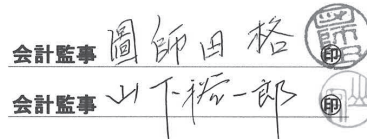 会計監事 圖師田 格 ㊞
会計監事 山下裕一郎 ㊞